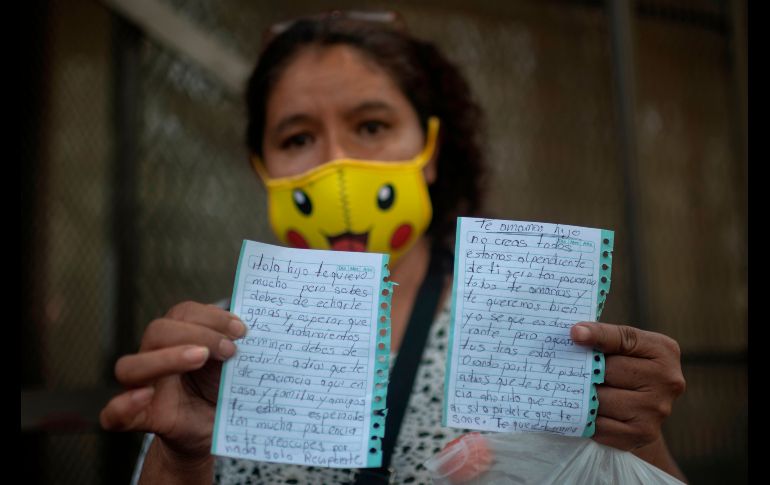 Hola hijo te quiero
Día Mes Año
mucho pero sabes
debes de echarle
ganas y esperar que
tus tratamientos
terminen debes de
pedirle a dios que te
de paciencia aqui en
casa y familia y amigos
te estamos esperado
ten mucha paciencia
no te preocupes por
nada solo Recuperate
te amamos hijo
no creas todos
Día Mes Año
estamos al pendiente
de ti pero ten paciencia
todos te amamos y
te queremos bien
yo se que es
pero
tus
este
que te de pacen
cia ahorito que estas
ai solo pidele que te
sane. Te quiero